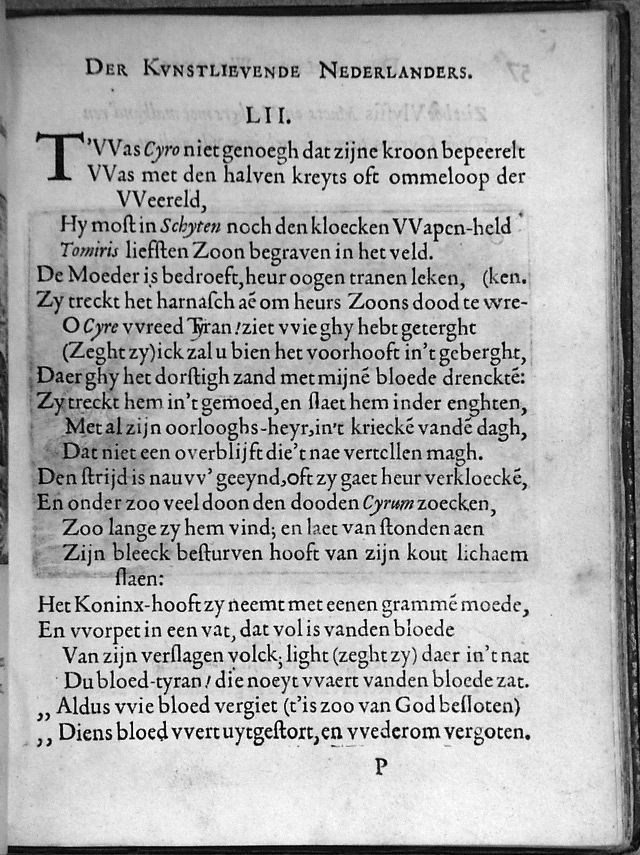 DER KVNSTLIEVENDE NEDERLANDERS.
LII.
T'VVas Cyro niet genoegh dat zijne kroon bepeerelt
VVas met den halven kreyts oft ommeloop der
VVeereld,
Hy most in Schyten noch den kloecken VVapen-held
Tomiris liefsten Zoon begraven in het veld.
De Moeder is bedroeft, heur oogen tranen leken, (ken.
Zy treckt het harnasch aē om heurs Zoons dood te wre-
O Cyre vvreed Tyran! ziet vvie ghy hebt geterght
(Zeght zy) ick zal u bien het voorhooft in't geberght,
Daer ghy het dorstigh zand met mijnē bloede drencktē:
Zy treckt hem in't gemoed, en slaet hem inder enghten,
Met al zijn oorlooghs-heyr, in't krieckē vandē dagh,
Dat niet een overblijft die't nae vertellen magh.
Den strijd is nauvv' geeynd, oft zy gaet heur verkloeckē,
En onder zoo veel doon den dooden Cyrum zoecken,
Zoo lange zy hem vind; en laet van stonden aen
Zijn bleeck besturven hooft van zijn kout lichaem
slaen:
Het Koninx-hooft zy neemt met eenen grammē moede,
En vvorpet in een vat, dat vol is vanden bloede
Van zijn verslagen volck; light (zeght zy) daer in't nat
Du bloed-tyran! die noeyt vvaert vanden bloede zat.
,, Aldus vvie bloed vergiet (t'is zoo van God besloten)
,, Diens bloed vvert uytgestort, en vvederom vergoten.
P